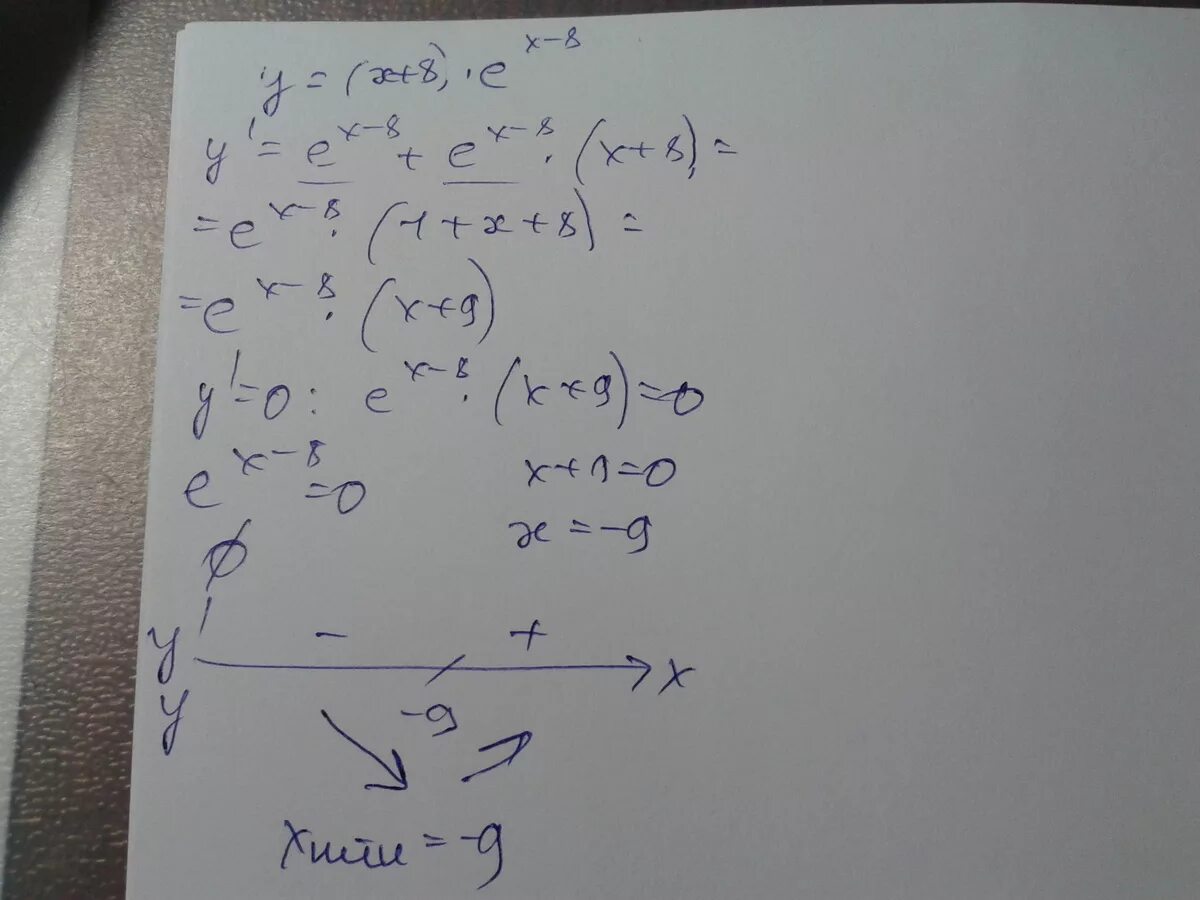 y = (x+8) · e^{x-8}
y' = e^{x-8} + e^{x-8} · (x+8) =
= e^{x-8} · (1+x+8) =
= e^{x-8} · (x+9)
y'=0: e^{x-8} · (x+9)=0
e^{x-8}=0 x+9=0
∅ x = -9
y' - + x
y -9
xmin = -9